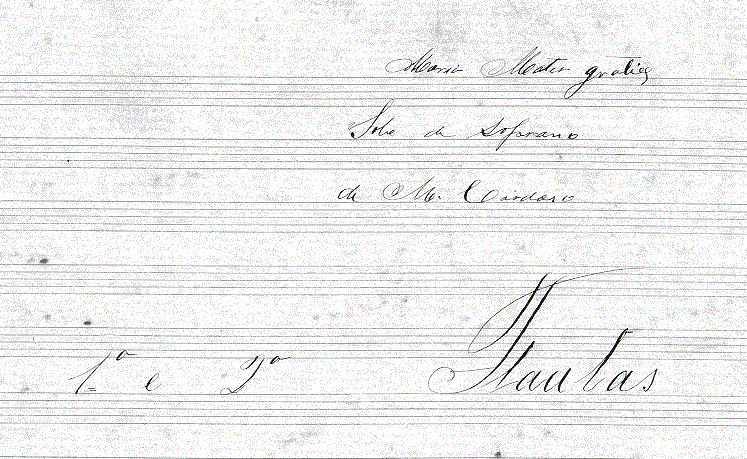 Maria Mater gratiæ
Solo de Soprano
de M. Cardoso
1ª e 2ª Flautas